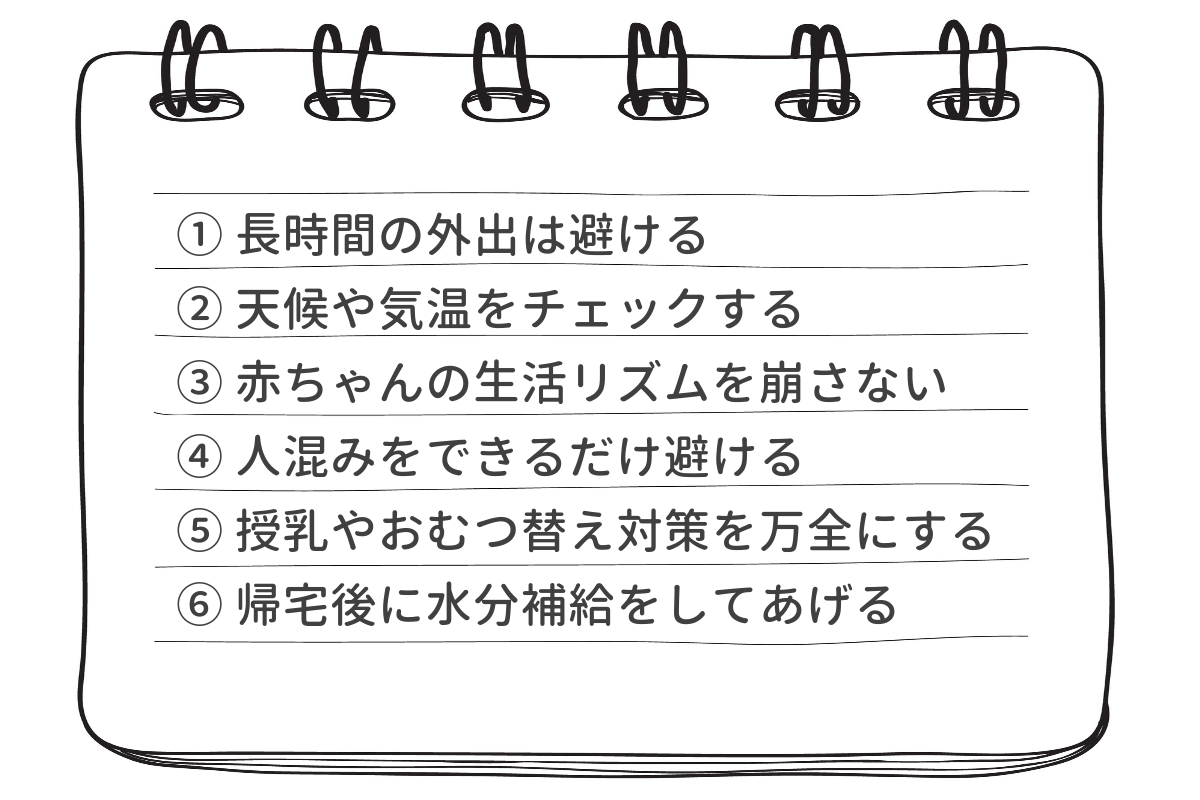 ① 長時間の外出は避ける
② 天候や気温をチェックする
③ 赤ちゃんの生活リズムを崩さない
④ 人混みをできるだけ避ける
⑤ 授乳やおむつ替え対策を万全にする
⑥ 帰宅後に水分補給をしてあげる